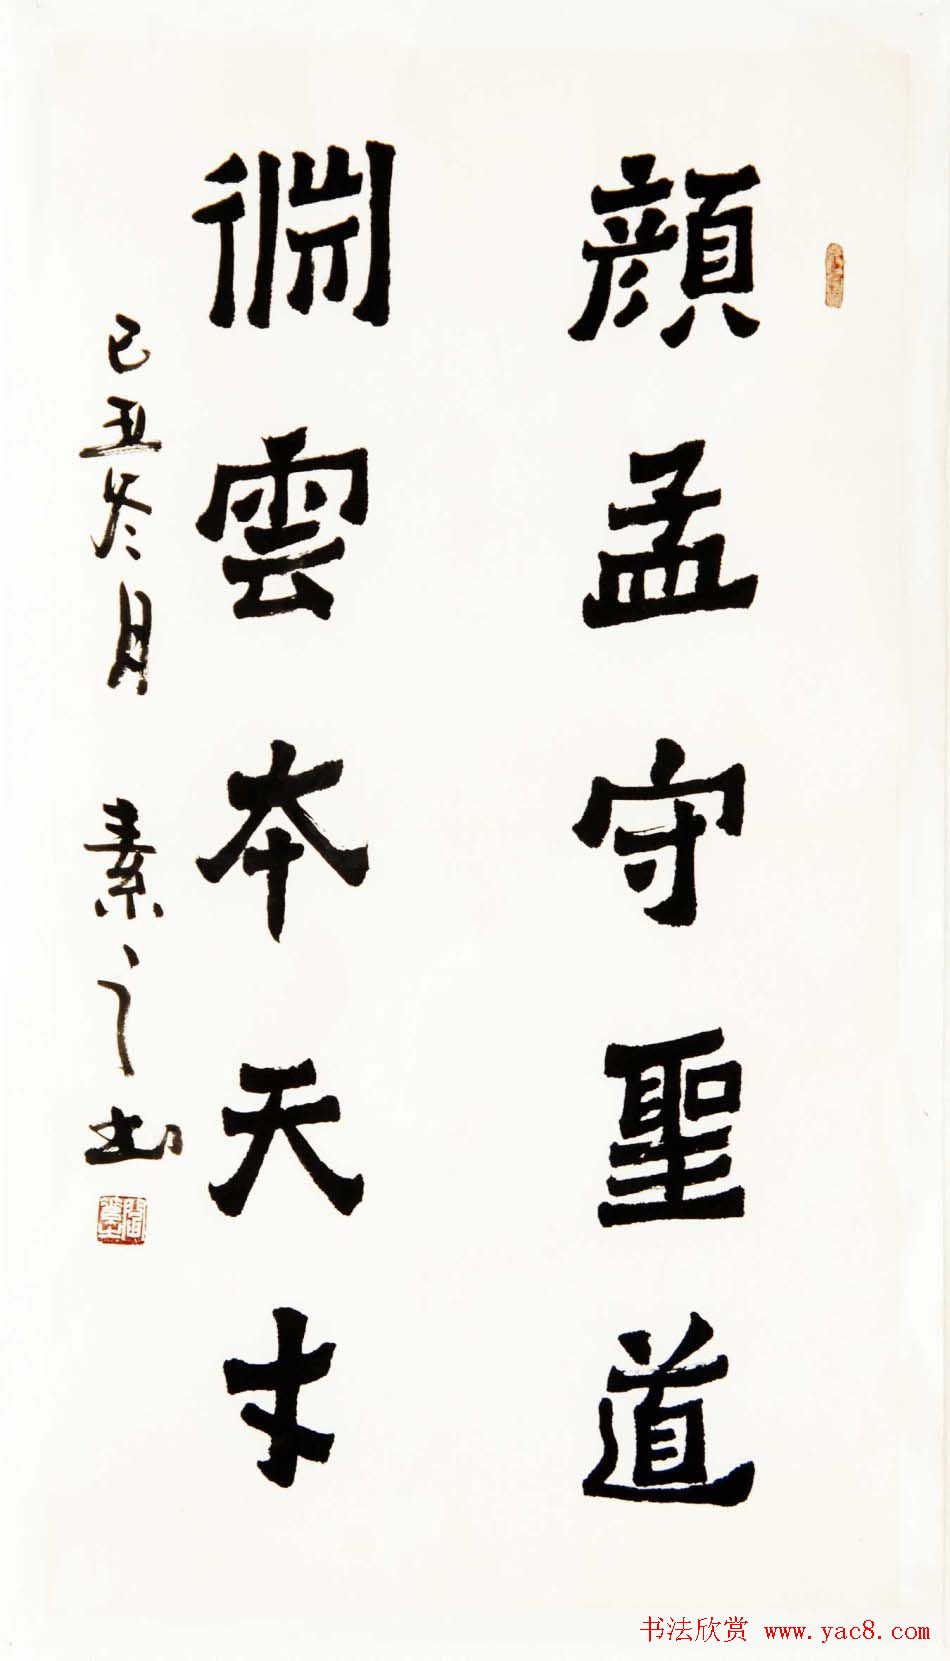 顔孟守聖道
淵雲本天才
己丑冬月 素之书
书法欣赏 www.yac8.com